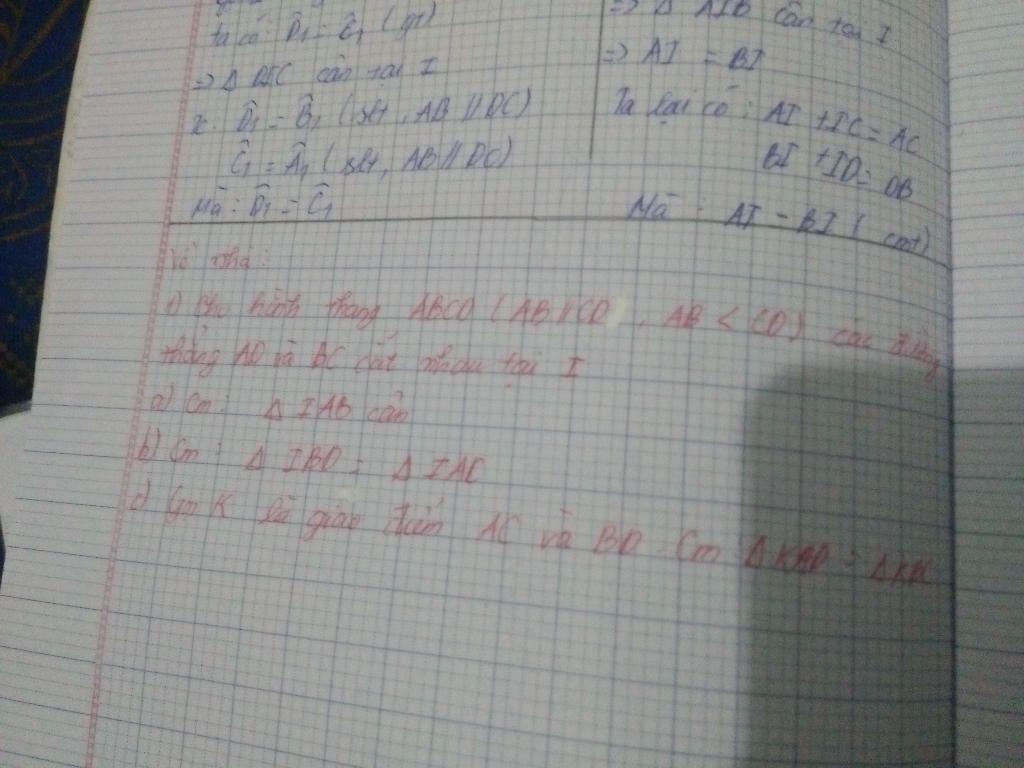 ta có: D̂1 = Ĉ1 (gt)
=> Δ DIC cân tại I
x. D̂1 = B̂1 (slt, AB // DC)
Ĉ1 = Â1 (slt, AB // DC)
Mà: D̂1 = Ĉ1
=> Δ AIB cân tại I
=> AI = BI
Ta lại có: AI + IC = AC
BI + ID = DB
Mà : AI = BI (cmt)
Về nhà:
1) Cho hình thang ABCD (AB // CD, AB < CD) các đường
thẳng AD và BC cắt nhau tại I
a) Cm: Δ IAB cân
b) Cm: Δ IBD = Δ IAC
c) Gọi K là giao điểm AC và BD. Cm Δ KAD = Δ KBC